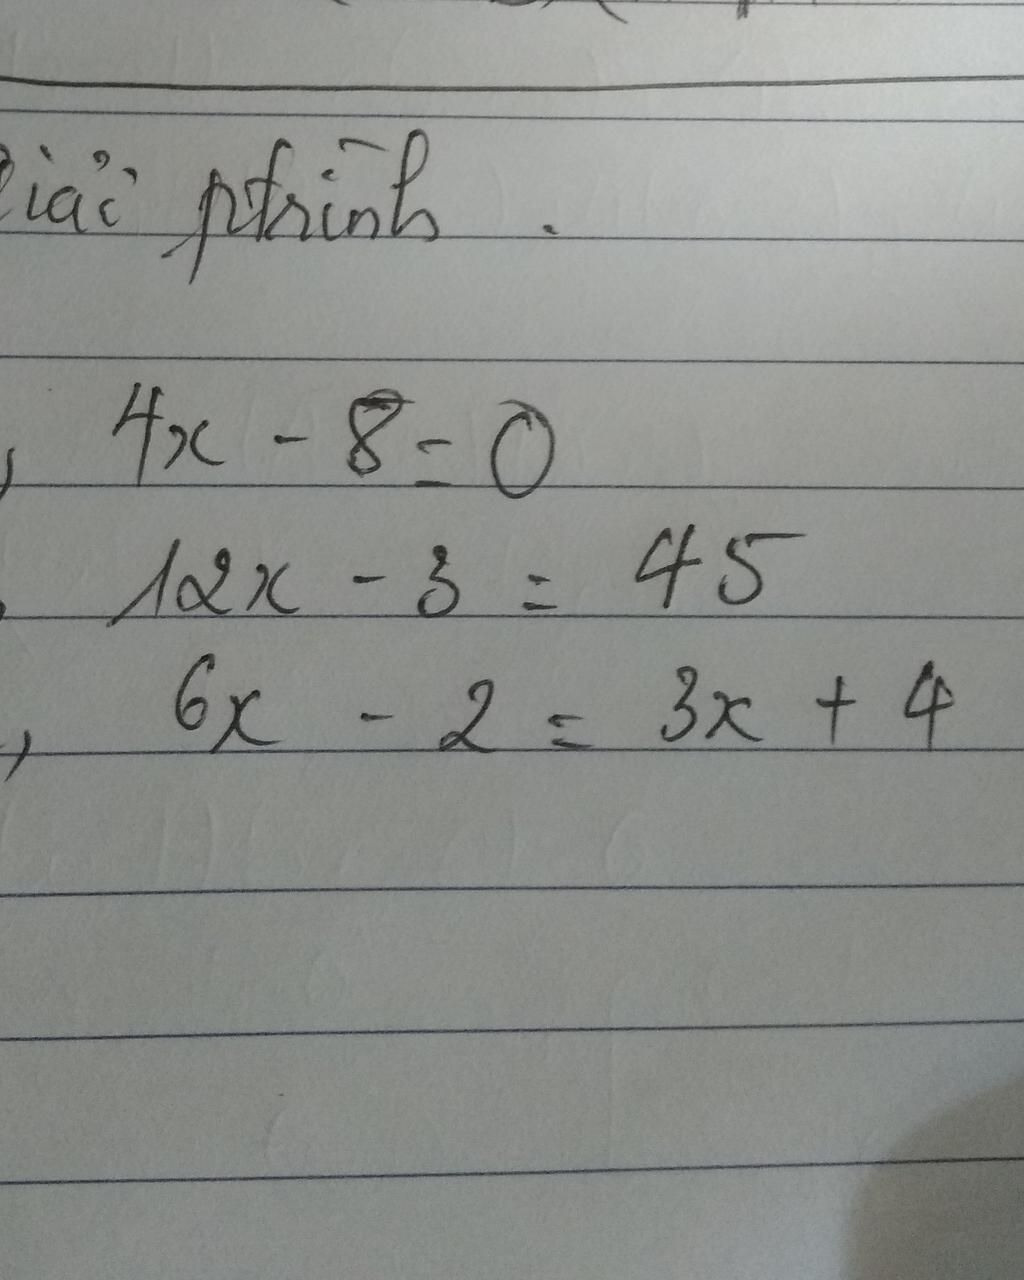 Giải ptrình .
, 4x - 8 = 0
, 12x - 3 = 45
, 6x - 2 = 3x + 4